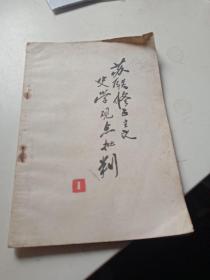 苏联修正主义
史学观点批判
1